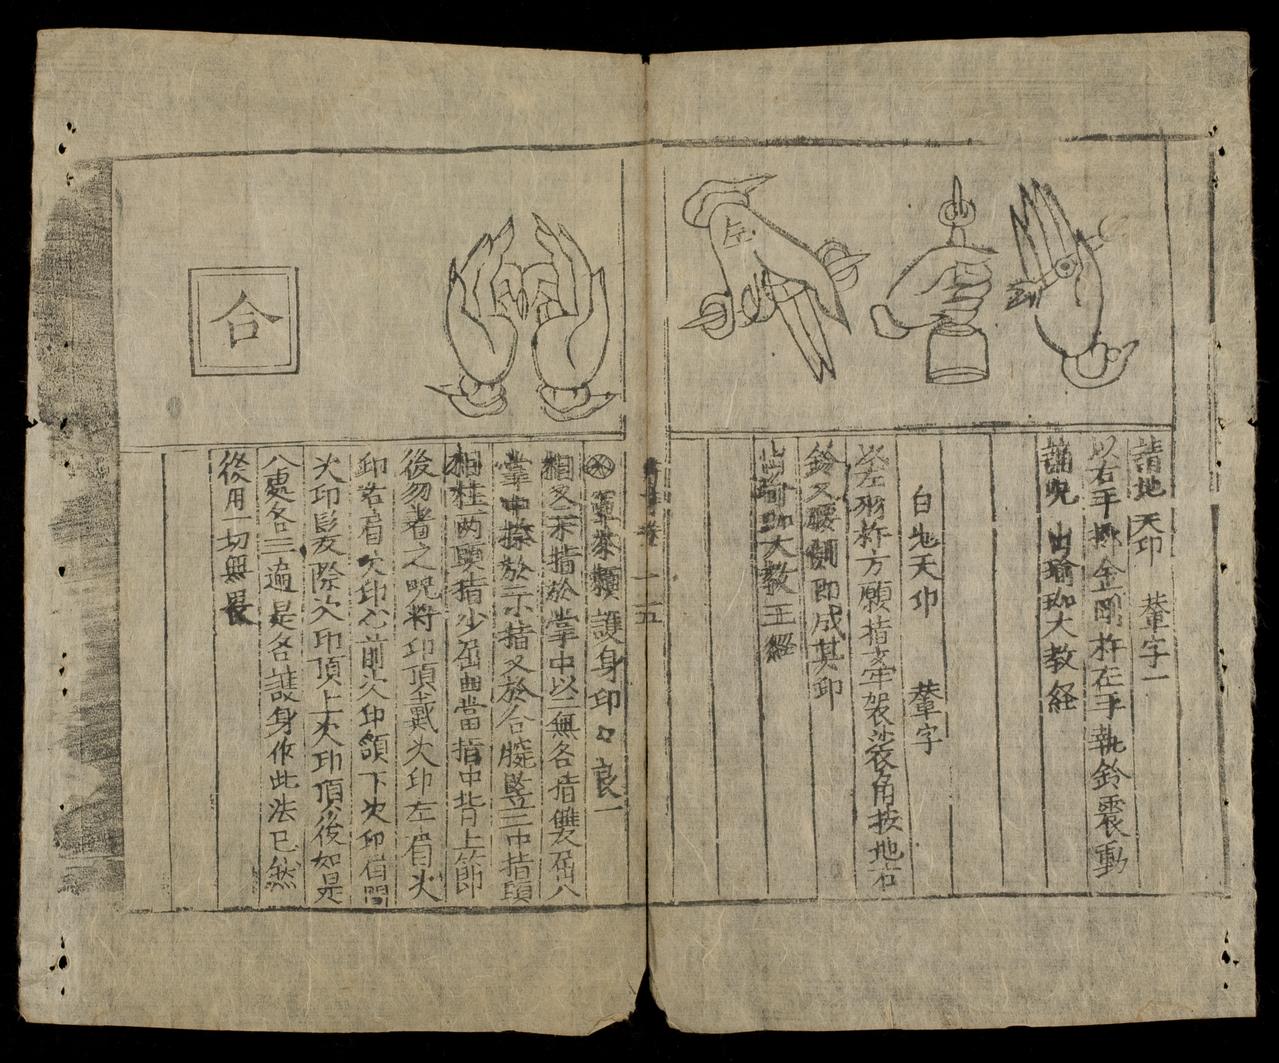 請地天印 葢字一
以右手擲金剛杵在手執鈴震動
誦呪 出瑜珈大教経
白地天印 葢字
以左羽杵方願指支牢袈裟角按地右
鈴叉腰側即成其印
出瑜珈大教王經
左
卷一 五
軍荼 護身印 良一
相叉 指於掌中以二無名指雙屈八
掌中 於 指叉於合腕竪二中指頭
相柱兩頭指少屈曲當指中背上節
後勿著之呪将印頂戴次印左肩次
印右肩次印心前次印頷下次印眉間
次印髮際次印頂上次印頂後如是
八處各三遍是各護身作此法已然
後用一切無畏
合